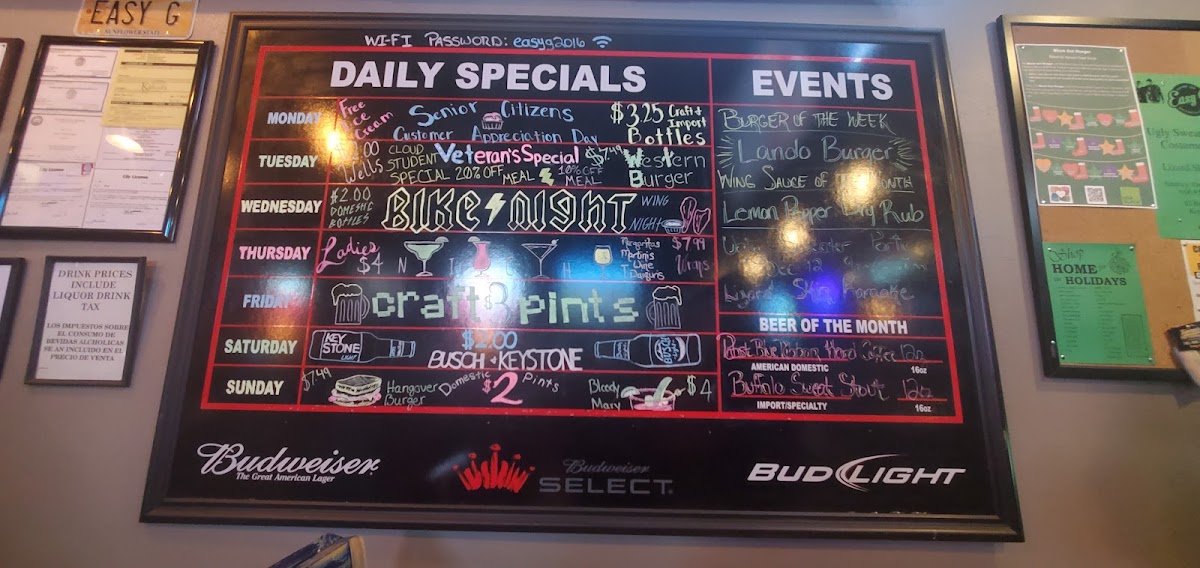 EASY G
SUNFLOWER STATE
WI-FI PASSWORD: easyg2016
DAILY SPECIALS
MONDAY Free Ice Cream Senior Citizens $3.25 Craft + Import Bottles
Customer Appreciation Day
TUESDAY Wells CLOUD STUDENT SPECIAL 20% OFF MEAL Veteran's Special 10% OFF MEAL $7.49 Western Burger
WEDNESDAY $2.00 DOMESTIC BOTTLES BIKE NIGHT WING NIGHT
THURSDAY Ladies $4 NIGHT Margaritas Martinis Wine Daiquiris $7.99 Wraps
FRIDAY craft $3 pints
SATURDAY KEYSTONE LIGHT $2.00 BUSCH + KEYSTONE BUSCH
SUNDAY $7.49 Hangover Burger Domestic $2 Pints Bloody Mary $4
EVENTS
BURGER OF THE WEEK
Lando Burger
WING SAUCE OF THE MONTH
Lemon Pepper Dry Rub
Karaoke
BEER OF THE MONTH
Pabst Blue Ribbon Hard Coffee 12oz
AMERICAN DOMESTIC 16oz
Buffalo Sweat Stout 12oz
IMPORT/SPECIALTY 16oz
Budweiser
The Great American Lager
Budweiser
SELECT
BUD LIGHT
DRINK PRICES
INCLUDE
LIQUOR DRINK
TAX
LOS IMPUESTOS SOBRE
EL CONSUMO DE
BEVIDAS ALCHOLICAS
SE AN INCLUIDO EN EL
PRECIO DE VENTA
Shop
HOME
HOLIDAYS
Ugly Sweater